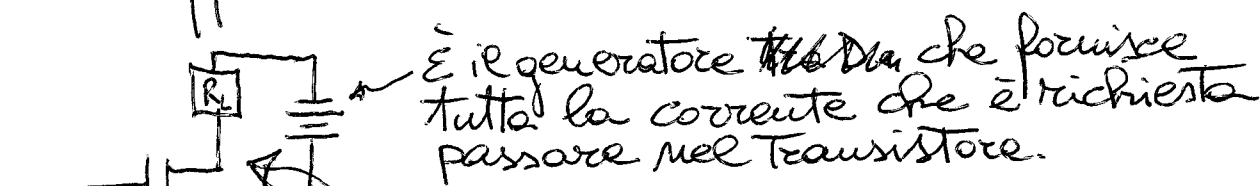 È il generatore che fornisce
RL
tutta la corrente che è richiesta
passare nel Transistore.